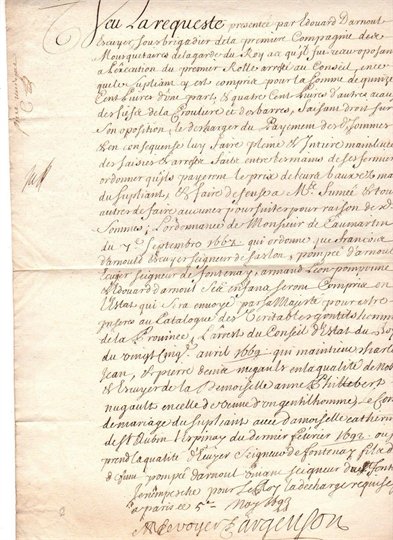 Veu La requeste presentée par Edouard Darnoul
Escuyer sousbrigadier de la premiere Compagnie des
Mousquetaires de la garde du Roy a ce qu'il fut receu oposan
a L'execution du premier Rolle aresté au Conseil, en ce
que le supliant y est compris pour la somme de quinze
Cent Livres d'une part, & quatre Cent Livres d'autre
faisant droit sur
son oposition, le descharger du Payement des dt sommes
& en consequense luy faire pleine & Entiere mainlevée
des saisies & arrests faits entre les mains de ses fermiers
ordonner qu'ils payeront le prix de leurs baux
du supliant, & faire defense a Mr. & tous
autres de faire aucunes poursuittes pour raison des dt
sommes; L'ordonnance de Monsieur de Caumartin
du 7e Septembre 1667 qui ordonne que francois
darnoul Escuyer seigneur de pompée d'arnoul
Escuyer seigneur de fontenay, armand Leon pompoinne
& Edouard d'arnoul ses enfans seront Compris en
L'Estat qui sera envoyé par sa Majesté pour estre
au Catalogue des Veritables gentilshommes
de la Province, L'arrest du Conseil d'Estat du Roy
du vingt cinq avril 1669 qui maintient Charles
Jean, & pierre denis nugault en la qualité de nobles
& Escuyer & la Demoiselle anne Philbert
nugault en celle de veuve d'un gentilhomme, le Con
de mariage du supliant avec damoiselle catherine
de St Aubin du dernier fevrier 1692 ou
prend la qualité d'Escuyer Seigneur de fontenay fils d
pompée darnoul Vivant seigneur du dt fonte
Je n'empesche pour le Roy la descharge requise
a paris ce 5e May 1698
De voyer Dargenson